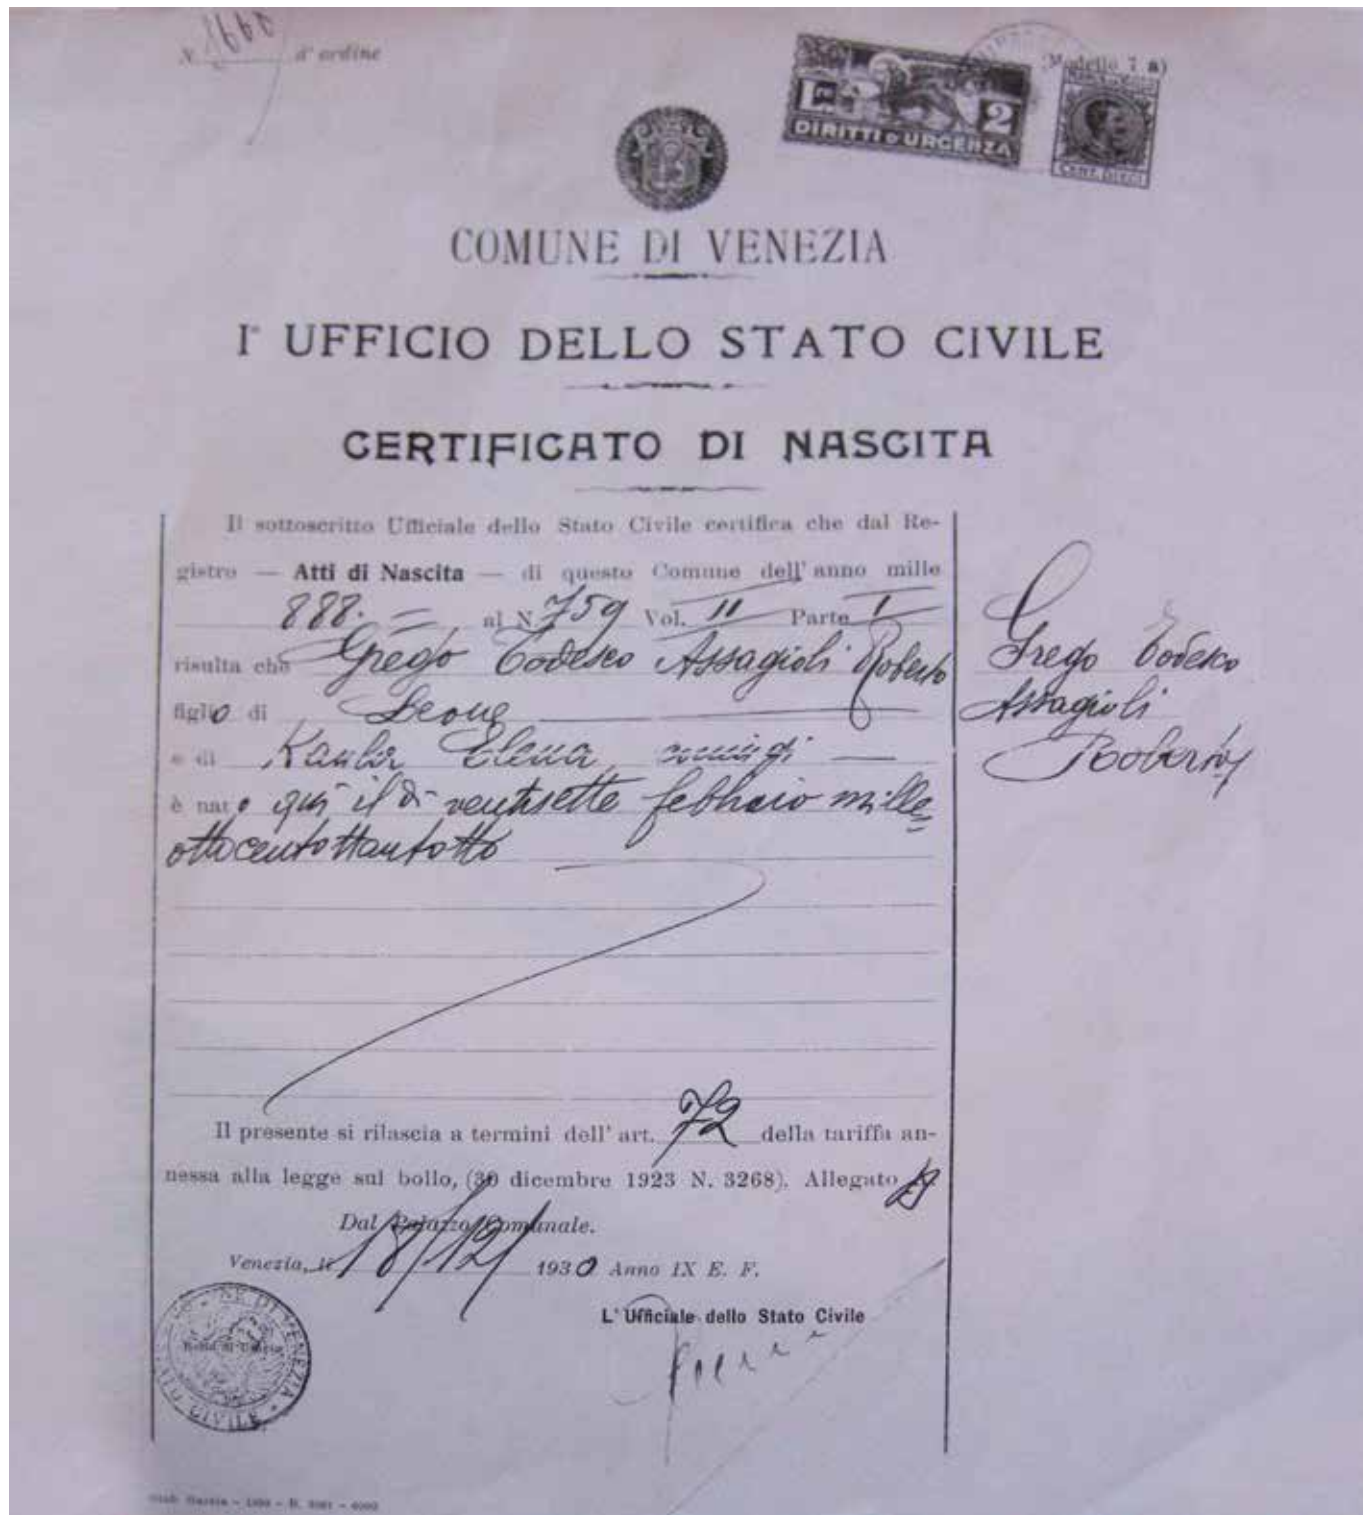 N. d'ordine
Modello 7 a)
L. 2
DIRITTI D'URGENZA
CENT. DIECI
COMUNE DI VENEZIA
I° UFFICIO DELLO STATO CIVILE
CERTIFICATO DI NASCITA
Il sottoscritto Ufficiale dello Stato Civile certifica che dal Re-
gistro — Atti di Nascita — di questo Comune dell'anno mille
888. = al N. 759 Vol. II Parte I
risulta che Grego Todesco Assagioli Roberto
figlio di Leone
e di Kaula Elena
è nato qui il dì ventisette febbraio mille=
ottocentottantotto
Grego Todesco
Assagioli
Roberto
Il presente si rilascia a termini dell'art. 72 della tariffa an-
nessa alla legge sul bollo, (30 dicembre 1923 N. 3268). Allegato
Dal Palazzo Comunale.
Venezia, li 18/12/ 1930 Anno IX E. F.
L'Ufficiale dello Stato Civile
COMUNE DI VENEZIA
STATO CIVILE